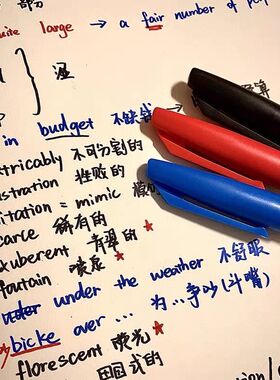 部分
quite large → a fair number of peo
} 湿
in budget 不缺钱 → 算
extricably 不可分割的
ustration 挫败的
itation = mimic 模
carce 稀有的
xuberent 青翠的 ★
fountain 喷泉 ★
under under the weather 不舒服
bicke over ... 为...争吵(斗嘴) ★
florescent 荧光 ★
田园式的